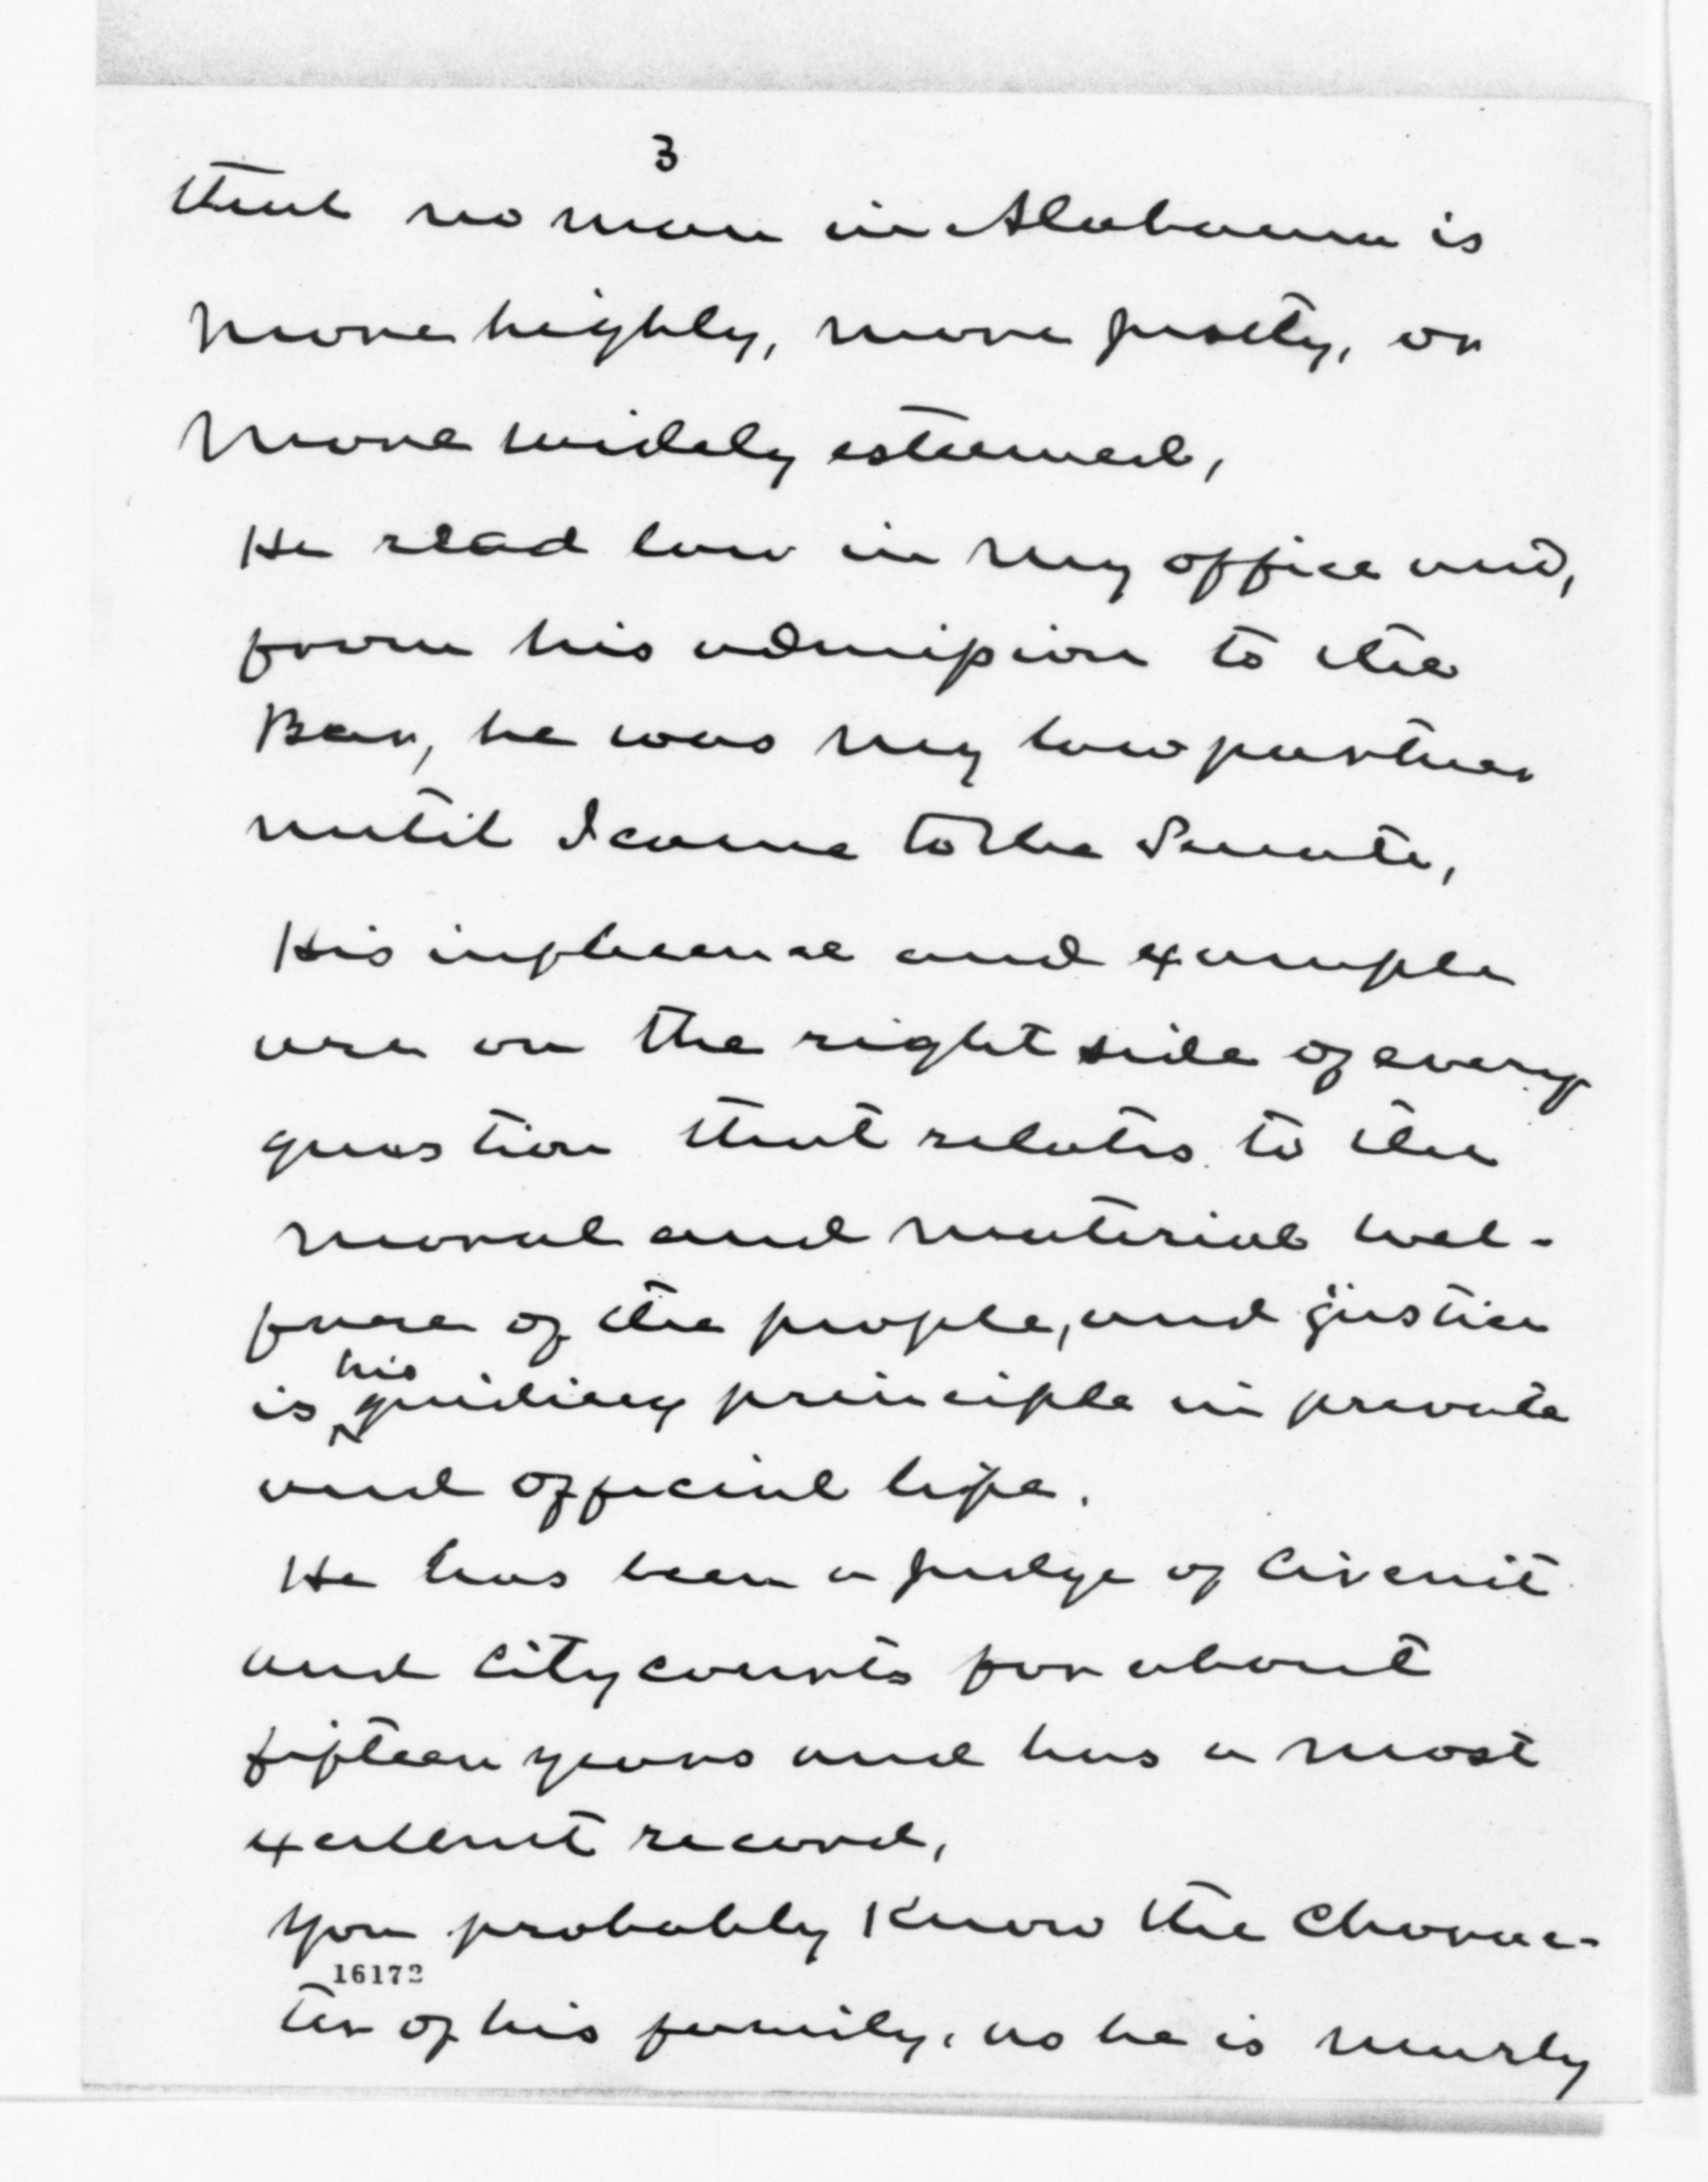 3
that no man in Alabama is
more highly, more justly, or
more widely esteemed,
He read law in my office and,
from his admission to the
Bar, he was my law partner
until I came to the Senate,
His influence and example
are on the right side of every
question that relates to the
moral and material wel-
fare of the people, and justice
his
is guiding principle in private
and official life.
He has been a judge of Circuit
and City courts for about
fifteen years and has a most
excellent record,
You probably Know the Charac-
16172
ter of his family, as he is nearly